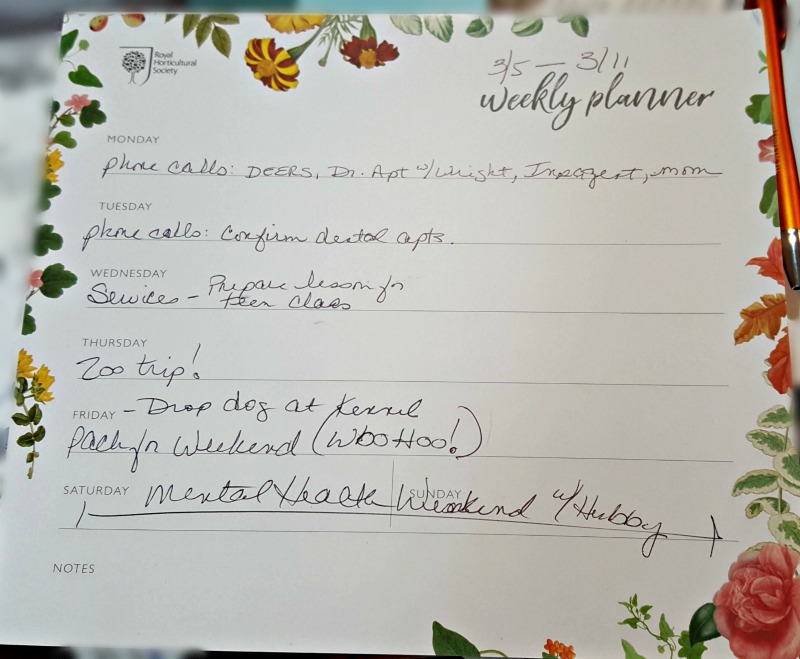 Royal
Horticultural
Society
3/5 — 3/11
weekly planner
MONDAY
phone calls: DEERS, Dr. Apt w/ Wright, Inprizent, mom
TUESDAY
phone calls: Confirm dental apts.
WEDNESDAY
Services - Prepare lesson for
teen class
THURSDAY
Zoo trip!
FRIDAY - Drop dog at Kennel
Pack for Weekend (WooHoo!)
SATURDAY SUNDAY
Mental Health Weekend w/ Hubby
NOTES